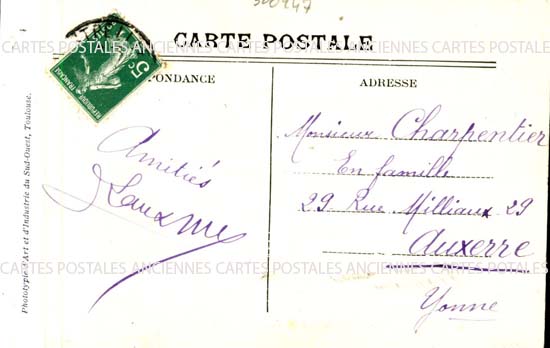 300947
CARTE POSTALE
CARTES POSTALES ANCIENNES CARTES POSTALES ANCIENNES CARTES POSTALES ANCIENNES
5c
REPUBLIQUE FRANÇAISE
PONDANCE
ADRESSE
Amitiés
Monsieur Charpentier
En famille
29 Rue Milliaux 29
Auxerre
Yonne
CARTES POSTALES ANCIENNES CARTES POSTALES ANCIENNES CARTES POSTALES ANCIENNES
Phototypie d'Art et d'Industrie du Sud-Ouest, Toulouse.